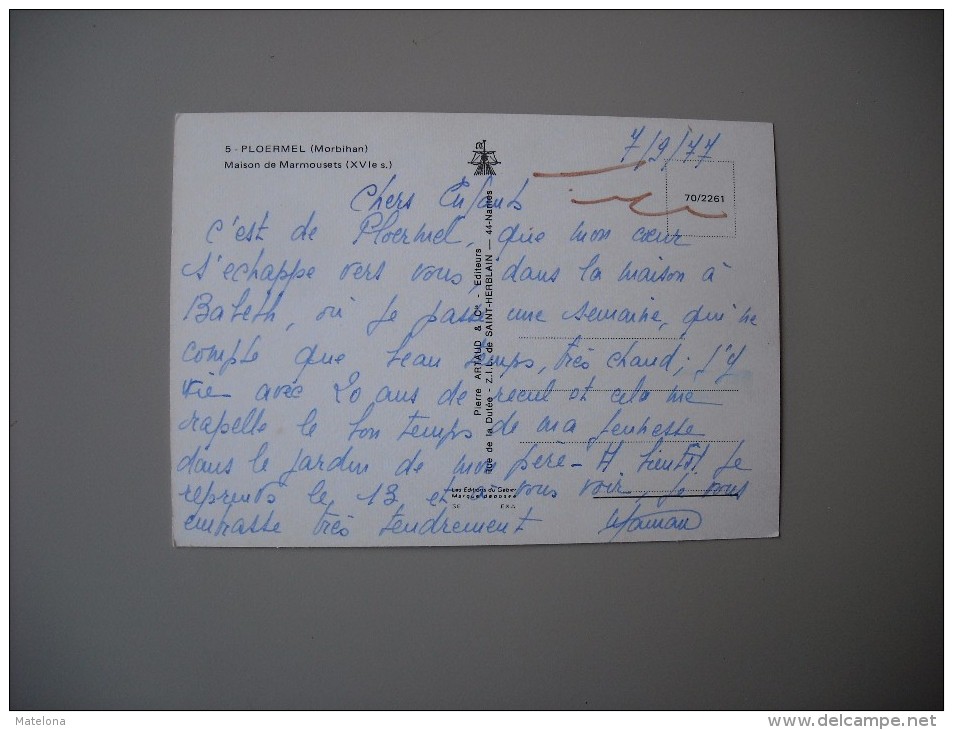 5 - PLOERMEL (Morbihan)
Maison de Marmousets (XVIe s.)
7/9/77
70/2261
Chers Enfants
c'est de Ploermel, que mon cœur
s'echappe vers vous, dans la maison à
Babeth, où je passe une semaine, qui ne
compte que beau temps, très chaud; j'y
vie avec 20 ans de recul et cela me
rapelle le bon temps de ma jeunesse
dans le jardin de mon père - A bientôt je
reprends le 13 et vous voir, je vous
embrasse très tendrement Maman
Pierre ARTAUD & Cie - Editeurs
rue de la Dutée - Z.I.L. de SAINT-HERBLAIN — 44-Nantes
Les Editions du Gabier
Marque déposée
Matelona
http://www.delcampe.net